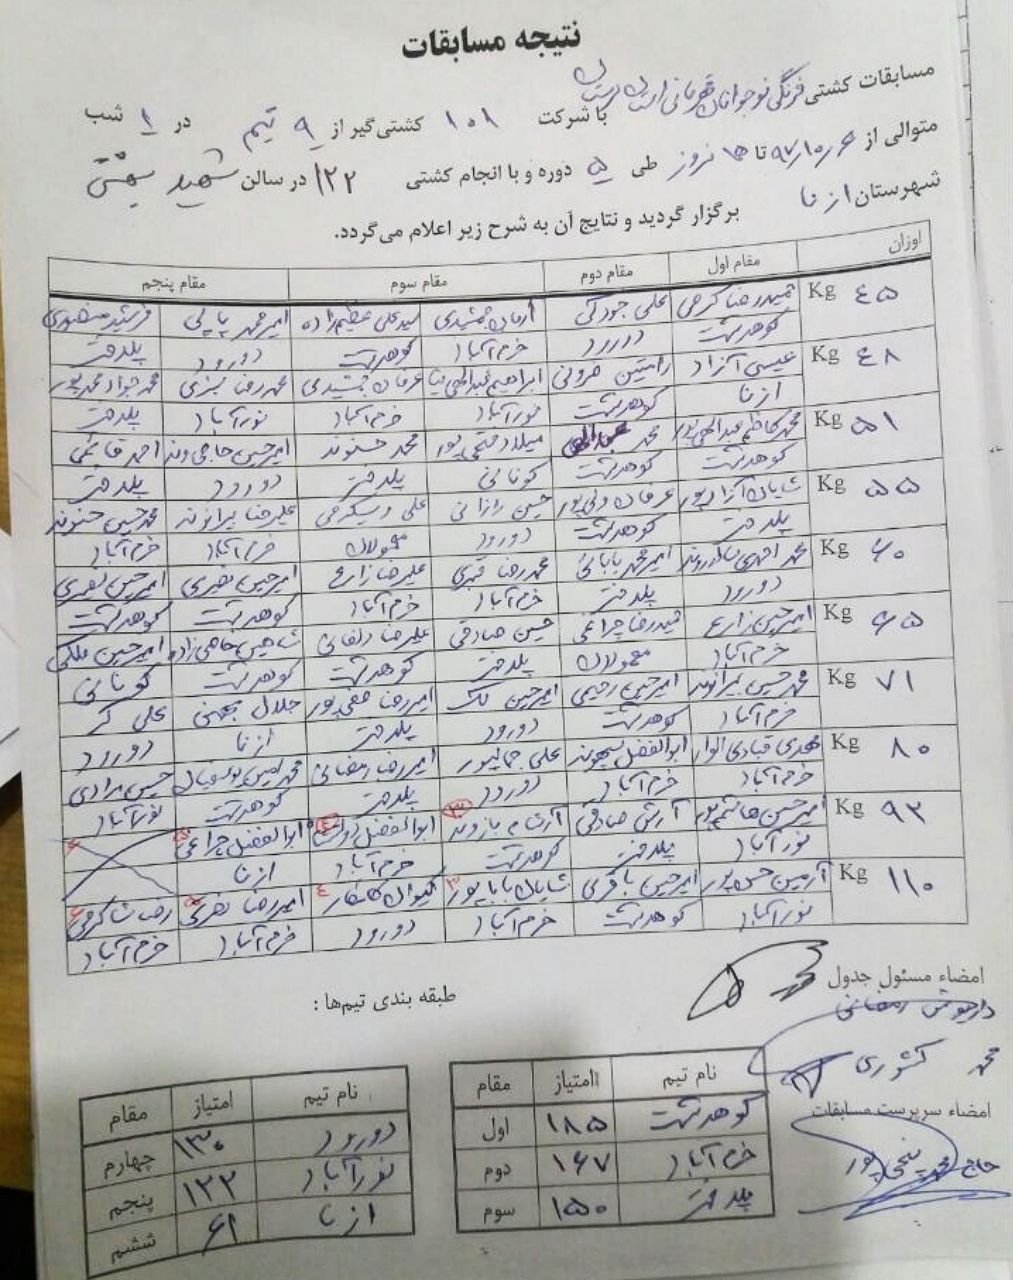 نتیجه مسابقات
مسابقات کشتی فرنگی نوجوانان قهرمانی استان لرستان
با شرکت ۱۰۱ کشتی‌گیر از ۹ تیم در ۱ شب
متوالی از ۹۷/۱۰/۰۶ تا روز طی ۵ دوره و با انجام کشتی ۱۲۲ در سالن شهید بهشتی
شهرستان ازنا برگزار گردید و نتایج آن به شرح زیر اعلام می‌گردد.
اوزان مقام اول مقام دوم مقام سوم مقام پنجم
۴۵ Kg حمیدرضا کرمی علی جودکی آرمان جمشیدی سیدعلی عظیم زاده امیرمحمد پاپی فرشید
کوهدشت دورود خرم آباد کوهدشت دورود پلدختر
۴۸ Kg عیسی آزاد رامتین هرونی ابراهیم عبدالهی نیا عرفان جمشیدی محمدرضا محمدجواد محمدپور
ازنا کوهدشت نورآباد خرم آباد نورآباد پلدختر
۵۱ Kg محمدکاظم عبدالهی پور محمد عبدالهی میلاد فتحی پور محمد حسنوند امیرحسین حاجی وند احمد قائمی
کوهدشت کوهدشت کونانی پلدختر دورود پلدختر
۵۵ Kg شایان آزادپور عرفان ولی پور حسین رازانی علی ویسکرمی علیرضا بیرانوند محمدحسین حسنوند
پلدختر کوهدشت دورود معمولان خرم آباد خرم آباد
۶۰ Kg محمد امیرمحمد بابائی محمدرضا قهری علیرضا زارع امیرحسین نصیری امیرحسین نصیری
دورود پلدختر خرم آباد خرم آباد کوهدشت کوهدشت
۶۵ Kg امیرحسین زارع حمیدرضا چراغی حسین صادقی علیرضا دلفانی شاهین حاجی زاده امیرحسین ملکی
خرم آباد معمولان پلدختر کوهدشت کوهدشت کونانی
۷۱ Kg محمدحسین بیرانوند امیرحسین رحیمی امیرحسین لک امیررضا صفی پور جلال بهمنی علی گر
خرم آباد کوهدشت دورود پلدختر ازنا دورود
۸۰ Kg مهدی قبادی الوار ابوالفضل سپهوند علی جمالپور امیررضا رمضانی محمدامین حسین مرادی
خرم آباد خرم آباد دورود پلدختر کوهدشت نورآباد
۹۲ Kg امیرحسین هاشم پور آرش صادقی آرشام بازوند ۳ ابوالفضل ۴ ابوالفضل چراغی ۵ ۶
نورآباد پلدختر کوهدشت خرم آباد ازنا
۱۱۰ Kg آرمین حسن پور امیرحسین باقری شایان باباپور ۳ کیوان کامکار ۴ امیررضا نصرتی ۵ رضا شاکرمی ۶
نورآباد کوهدشت خرم آباد دورود خرم آباد خرم آباد
امضاء مسئول جدول
داریوش رمضانی
محمد کشوری
امضاء سرپرست مسابقات
حاج محمد فتحی پور
طبقه بندی تیم‌ها :
نام تیم امتیاز مقام
کوهدشت ۱۸۵ اول
خرم آباد ۱۶۷ دوم
پلدختر ۱۵۰ سوم
نام تیم امتیاز مقام
دورود ۱۳۰ چهارم
نورآباد ۱۲۲ پنجم
ازنا ۶۱ ششم